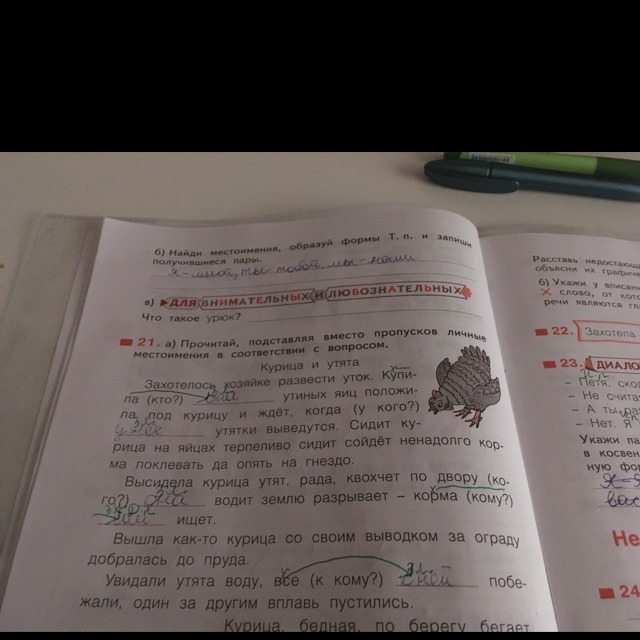 б) Найди местоимения, образуй формы Т. п. и запиши
получившиеся пары.
я-мной, ты-тобой, мы-нами
в) ДЛЯ ВНИМАТЕЛЬНЫХ И ЛЮБОЗНАТЕЛЬНЫХ
Что такое урюк?
21. а) Прочитай, подставляя вместо пропусков личные
местоимения в соответствии с вопросом.
Курица и утята
Захотелось хозяйке развести уток. Купи-
ла (кто?) утиных яиц положи-
ла под курицу и ждёт, когда (у кого?)
утятки выведутся. Сидит ку-
рица на яйцах терпеливо сидит сойдёт ненадолго кор-
ма поклевать да опять на гнездо.
Высидела курица утят, рада, квохчет по двору (ко-
го?) водит землю разрывает – корма (кому?)
ищет.
Вышла как-то курица со своим выводком за ограду
добралась до пруда.
Увидали утята воду, все (к кому?) с ней побе-
жали, один за другим вплавь пустились.
Курица, бедная, по берегу бегает,
Расставь недостающ
объясни их графиче
б) Укажи у вписанн
слово, от кот
речи являются гл
22. Захотела
23. ДИАЛО
– Петя, скор
– Не счита
– А ты
– Нет. Я
Укажи па
в косвен
ную фор
вас
Не
24